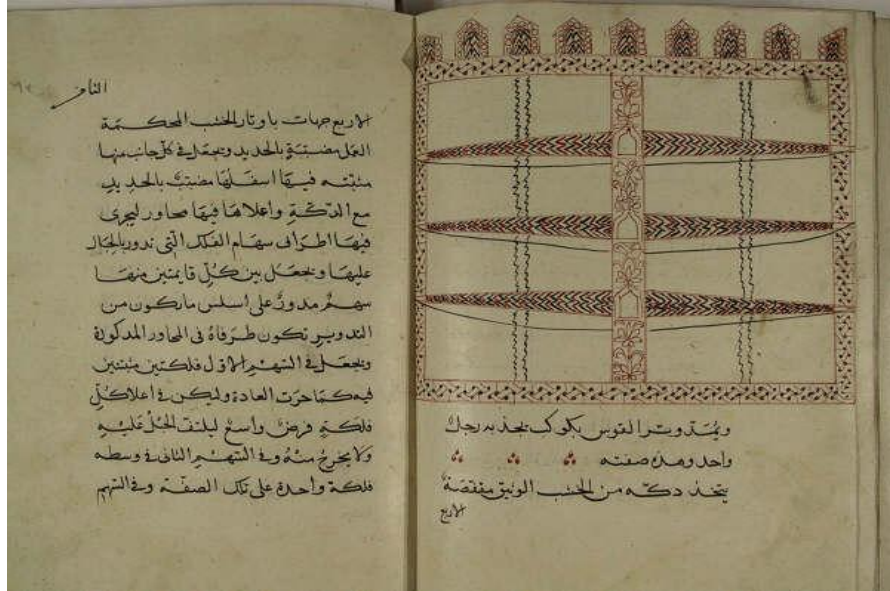 ويمدّ وتر القوس بكوكب يجذبه رجل
واحد وهذه صفته
يتخذ دكّه من الخشب الوثيق مقفصة
الاربع
الاربع جهات باوتار الخشب المحكمة
العمل مضبّبة بالحديد ويجعل في كلّ جانب منها
مثبّته فيها اسفلها مضبّب بالحديد
مع الدكّة واعلاها فيها محاور ليجرى
فيها اطراف سهام الفلك الّتى تدور بالحبال
عليها ويجعل بين كلّ قايمتين منها
سهم مدورٌ على اسلس مايكون من
التدوير تكون طرفاهُ فى المحاور المذكورة
ويجعل فى السّهم الاوّل فلكتين مثبتتين
فيه كما جرت العادة وليكن فى اعلا كلّ
فلكةٍ فرضٌ واسعٌ ليلتف الحبلُ عليهِ
ولا يخرج منهُ وفى السّهم الثانى فى وسطه
فلكة واحدة على تلك الصفة وفى السّهم